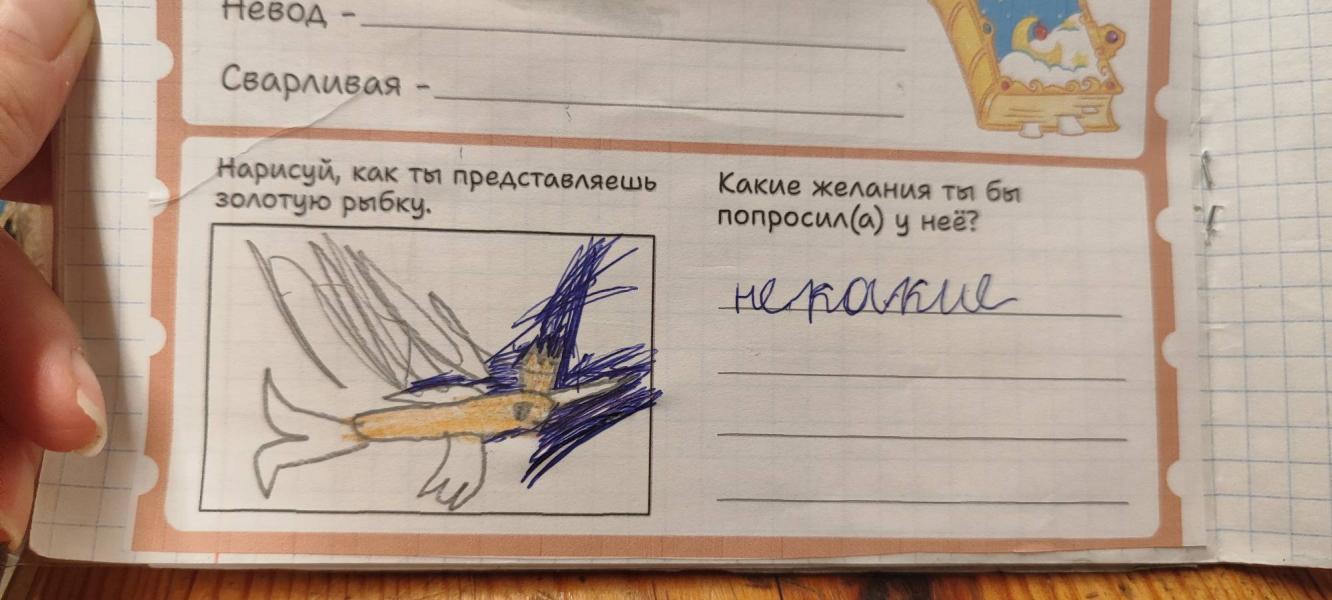 Невод -
Сварливая -
Нарисуй, как ты представляешь
золотую рыбку.
Какие желания ты бы
попросил(а) у неё?
некакие